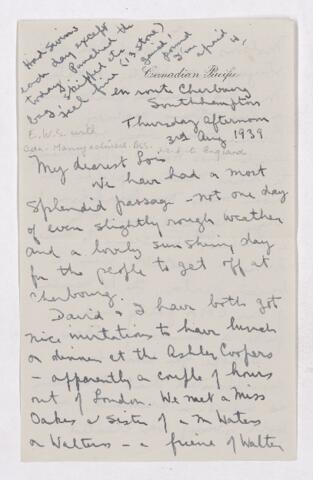 Had swims
each day except
today. Punched the
bag, skipped etc
feel fine (13 stone)
Canadian Pacific
en route Cherbourg
Southhampton
Thursday afternoon
3rd Aug 1939
E.W.S. with
England
My dearest Lois
We have had a most
splendid passage - not one day
of even slightly rough weather
and a lovely sun shiny day
for the people to get off at
Cherbourg.
David & I have both got
nice invitations to have lunch
or dinner at the Ashley Coopers
- apparently a couple of hours
out of London. We met a Miss
Oakes a sister of a Mr Waters
or Walters - a friend of Walter